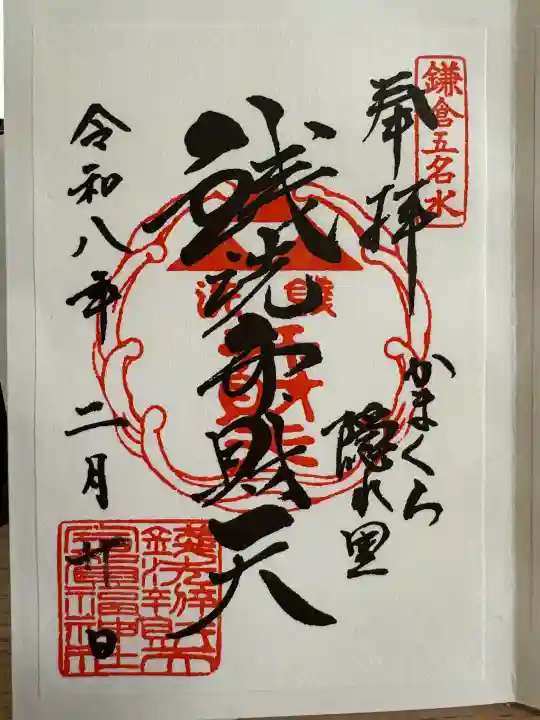 鎌倉五名水
奉拝
かまくら
隠れ里
銭洗弁財天
令和八年二月廿日